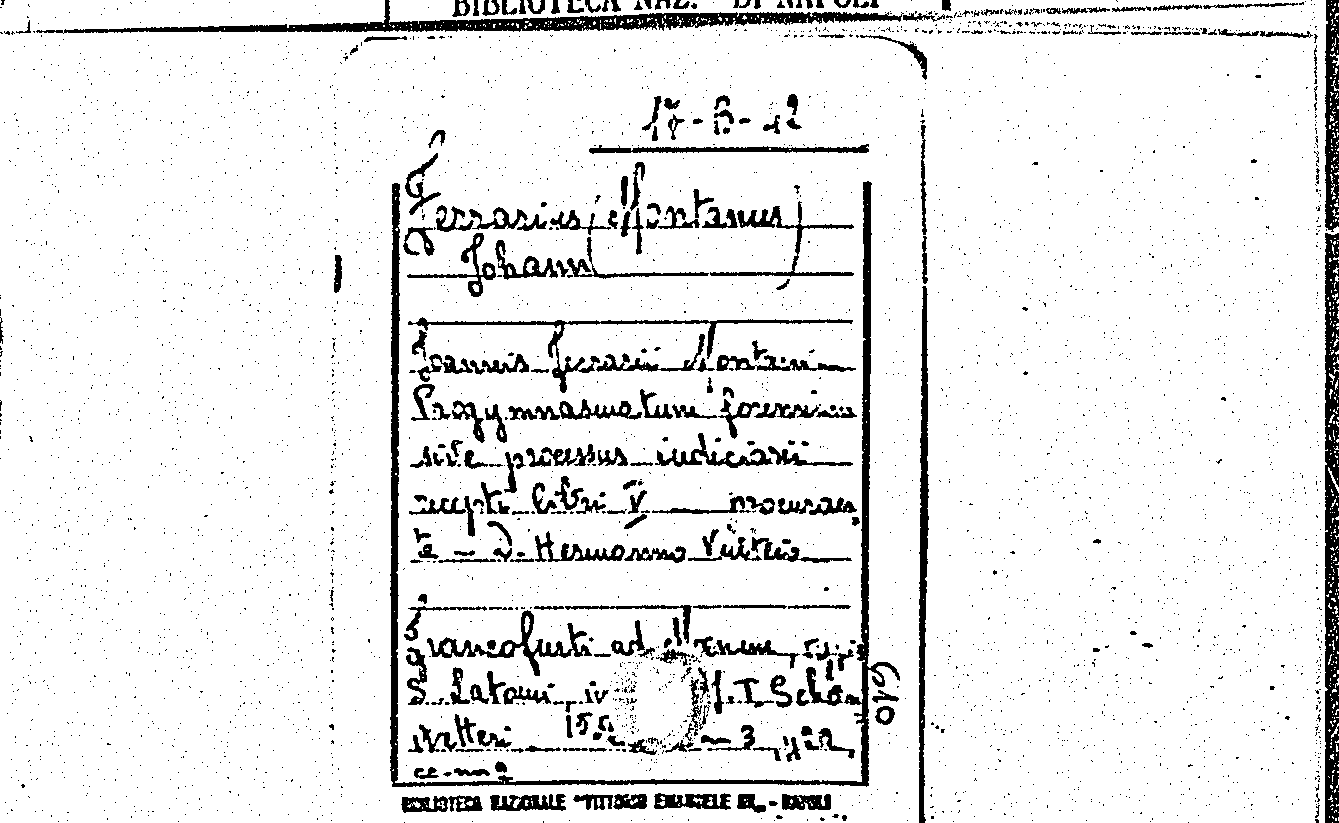 BIBLIOTECA NAZ. DI NAPOLI
17-B-42
Ferrarius (Montanus)
Johann
Joannis Ferrarii Montani
Progymnasmatum forensium
sive processus iudiciarii
recepti libri V procuran
te D. Hermanno Vulteio
Francofurti ad Moenum,
S. Latomi, J. T. Schön
wetteri
3
BIBLIOTECA NAZIONALE "VITTORIO EMANUELE III" - NAPOLI